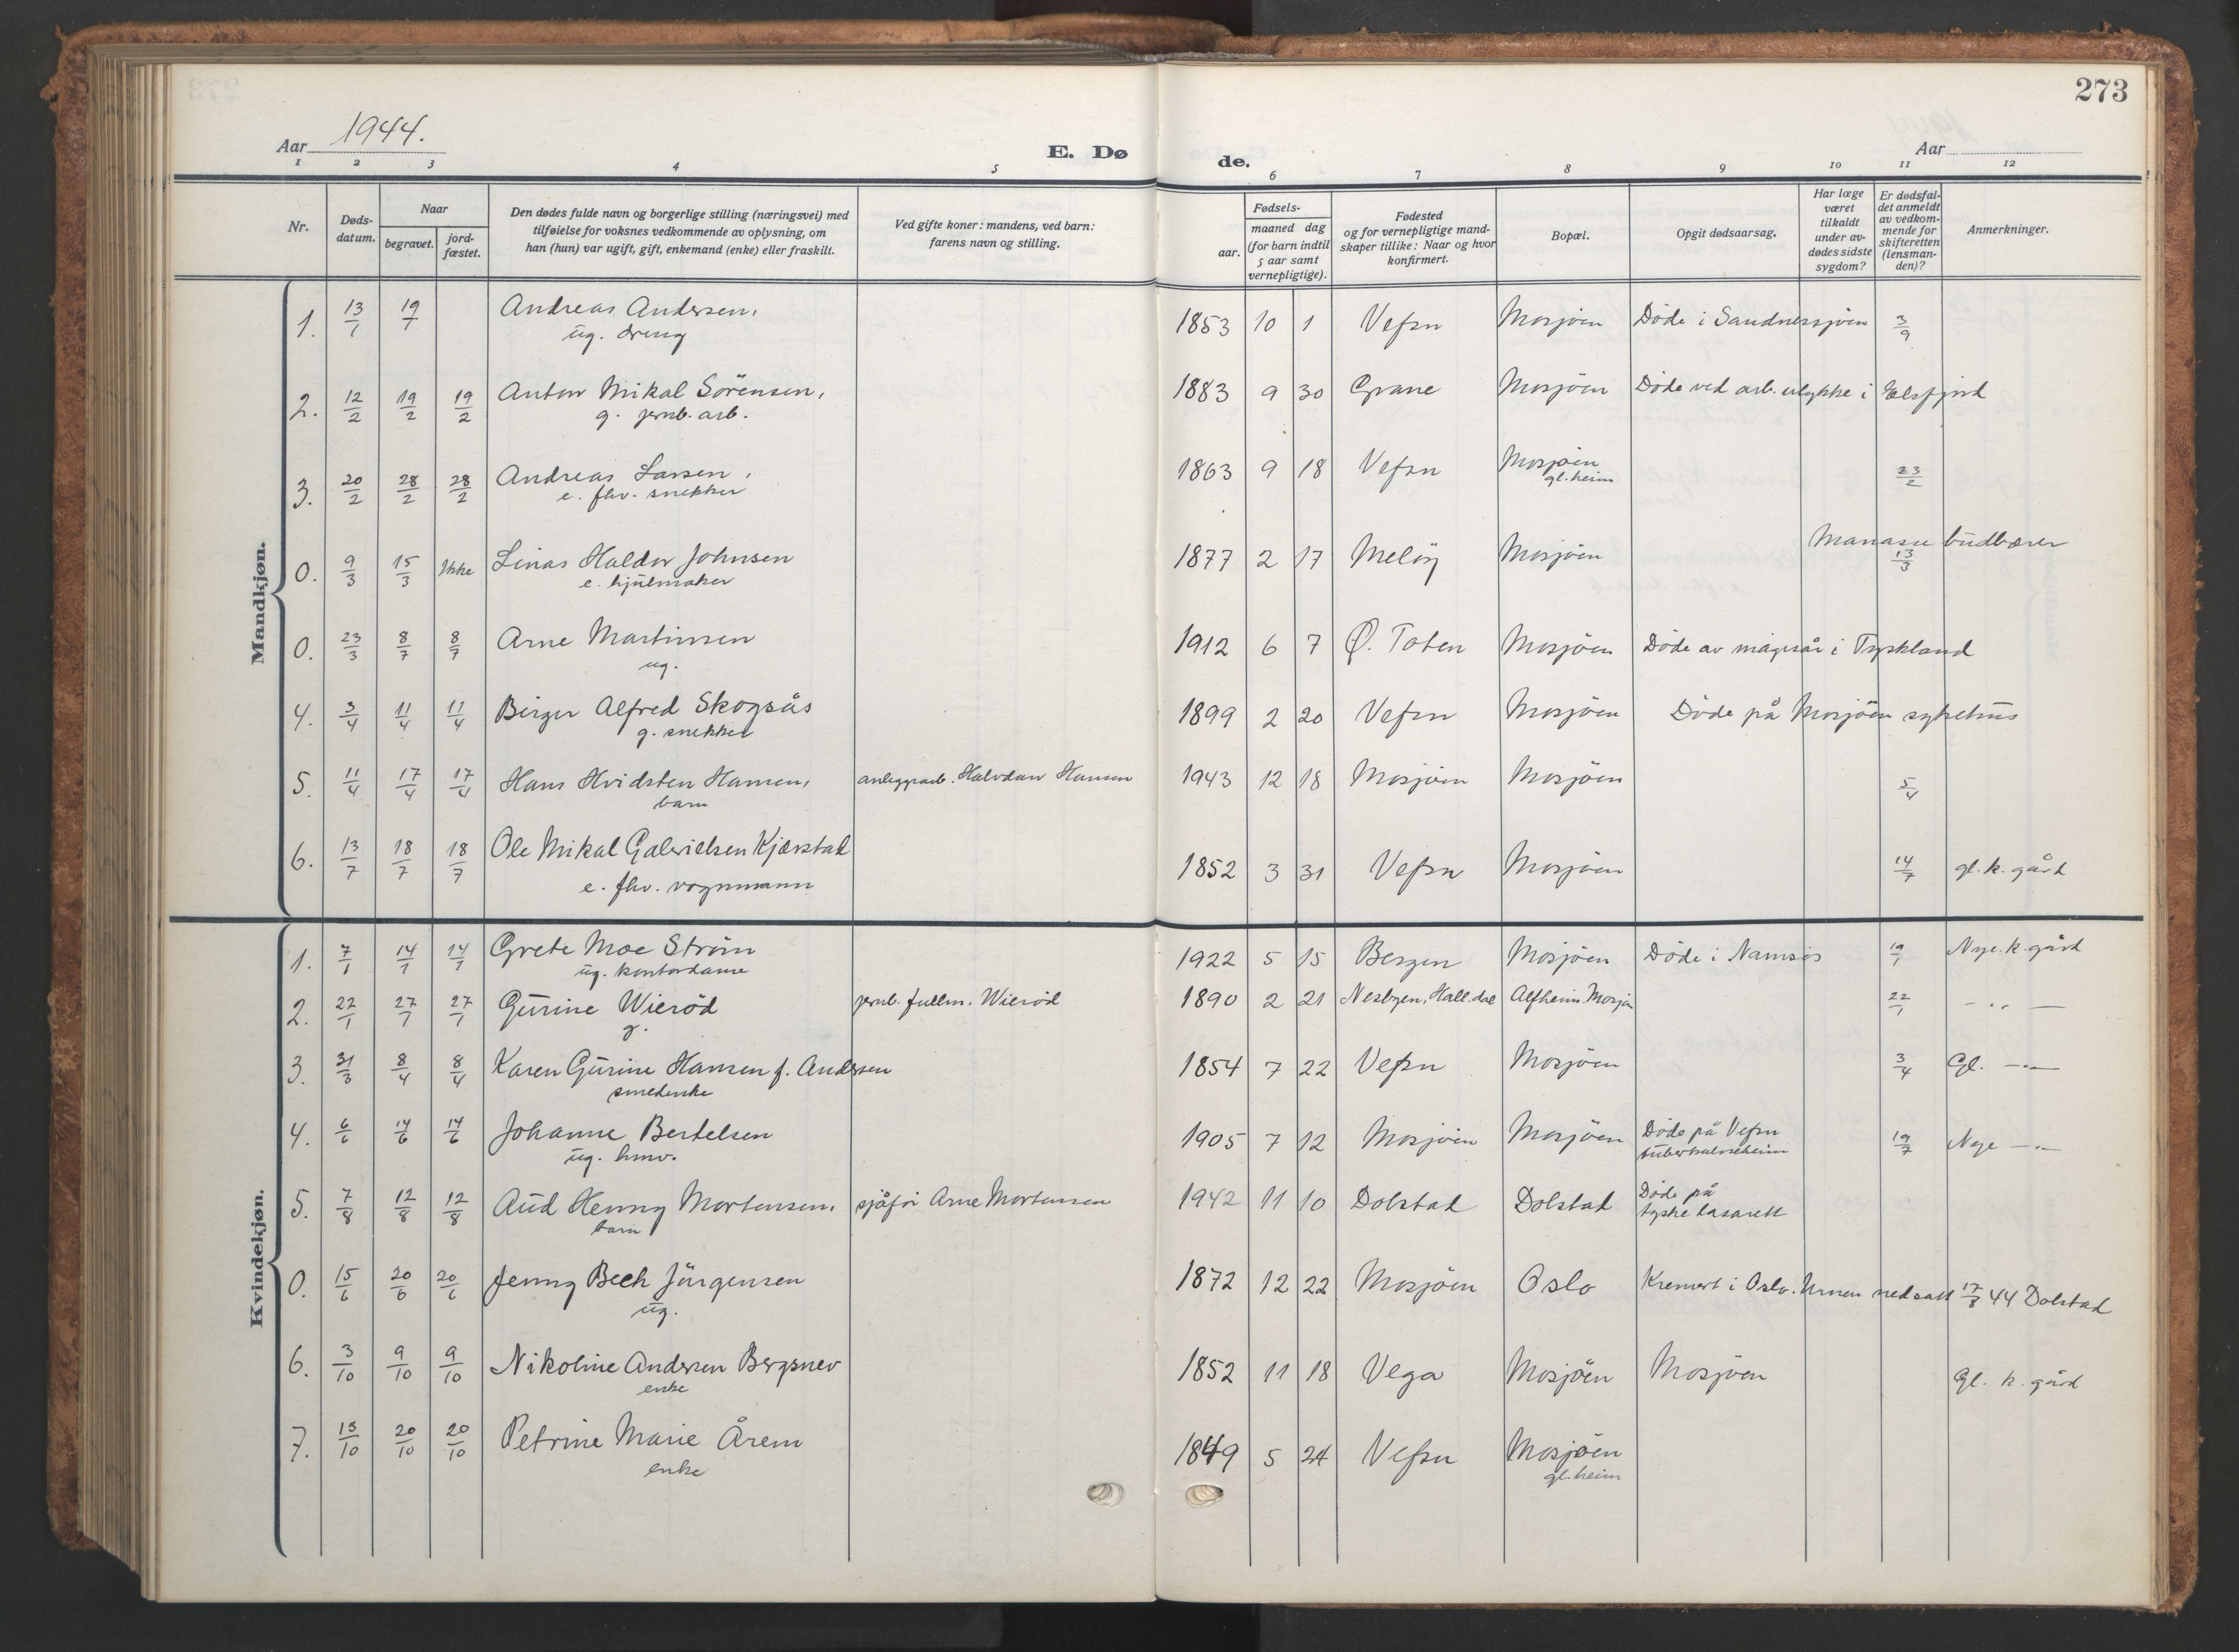 273
Aar 1944.
E. Dø de.
Aar
1 2 3 4 5 6 7 8 9 10 11 12
Nr.
Døds-
datum.
Naar
begravet.
jord-
fæstet.
Den dødes fulde navn og borgerlige stilling (næringsvei) med
tilføielse for voksnes vedkommende av oplysning, om
han (hun) var ugift, gift, enkemand (enke) eller fraskilt.
Ved gifte koner: mandens, ved barn:
farens navn og stilling.
Fødsels-
aar.
maaned dag
(for barn indtil
5 aar samt
vernepligtige).
Fødested
og for vernepligtige mand-
skaper tillike: Naar og hvor
konfirmert.
Bopæl.
Opgit dødsaarsag.
Har læge
været
tilkaldt
under av-
dødes sidste
sygdom?
Er dødsfal-
det anmeldt
av vedkom-
mende for
skifteretten
(lensman-
den)?
Anmerkninger.
Mandkjøn.
1. 13/1 19/1 Andreas Andersen, 1853 10 1 Vefsn Mosjöen Döde i Sandnessjöen 3/9
ug. dreng
2. 12/2 19/2 19/2 Anton Mikal Sörensen, 1883 9 30 Grane Mosjöen Döde ved arb. ulykke i Elsfjord
g. jernb. arb.
3. 20/2 28/2 28/2 Andreas Larsen, 1863 9 18 Vefsn Mosjöen 23/2
e. fhv. snekker gl. heim
0. 9/3 15/3 Ikke Linas Haldor Johnsen 1877 2 17 Melöy Mosjöen Manasse budbærer
e. hjulmaker 13/3
0. 23/3 8/7 8/7 Arne Martinsen 1912 6 7 Ø. Toten Mosjöen Döde av magesår i Tyskland
ug.
4. 3/4 11/4 11/4 Birger Alfred Skogsås 1899 2 20 Vefsn Mosjöen Döde på Mosjöen sykehus
g. snekker
5. 11/4 17/4 17/4 Hans Hvidsten Hansen, anleggsarb. Halvdan Hansen 1943 12 18 Mosjöen Mosjöen 5/4
barn
6. 13/7 18/7 18/7 Ole Mikal Gabrielsen Kjærstad 1852 3 31 Vefsn Mosjöen 14/7 gl. k. gård
e. fhv. vognmann
Kvindekjøn.
1. 7/1 14/1 14/1 Grete Moe Ström 1922 5 15 Bergen Mosjöen Döde i Namsos 19/1 Nye. k. gård
ug. kontordame
2. 22/1 27/1 27/1 Gurine Wieröd jernb. fullm. Wieröd 1890 2 21 Nesbyen, Hall.dal Alfheim. Mosjö 22/1 - .. -
g.
3. 31/3 8/4 8/4 Karen Gurine Hansen f. Andersen 1854 7 22 Vefsn Mosjöen 3/4 Gl. -..-
smedenke
4. 6/6 14/6 14/6 Johanne Bertelsen 1905 7 12 Mosjöen Mosjöen Döde på Vefsn 19/7 Nye -..-
ug. hmv. tuberkuloseheim
5. 7/8 12/8 12/8 Aud Henny Mortensen, sjåför Arne Mortensen 1942 11 10 Dolstad Dolstad Döde på
barn tyske lasarett
0. 15/6 20/6 20/6 Jenny Bech Jürgensen 1872 12 22 Mosjöen Oslo Kremert i Oslo. Urnen nedsatt 17/8 44 Dolstad
ug.
6. 3/10 9/10 9/10 Nikoline Andersen Bergsnev 1852 11 18 Vega Mosjöen Mosjöen gl. k. gård
enke
7. 13/10 20/10 20/10 Petrine Marie Årem 1849 5 24 Vefsn Mosjöen
enke gl. heim